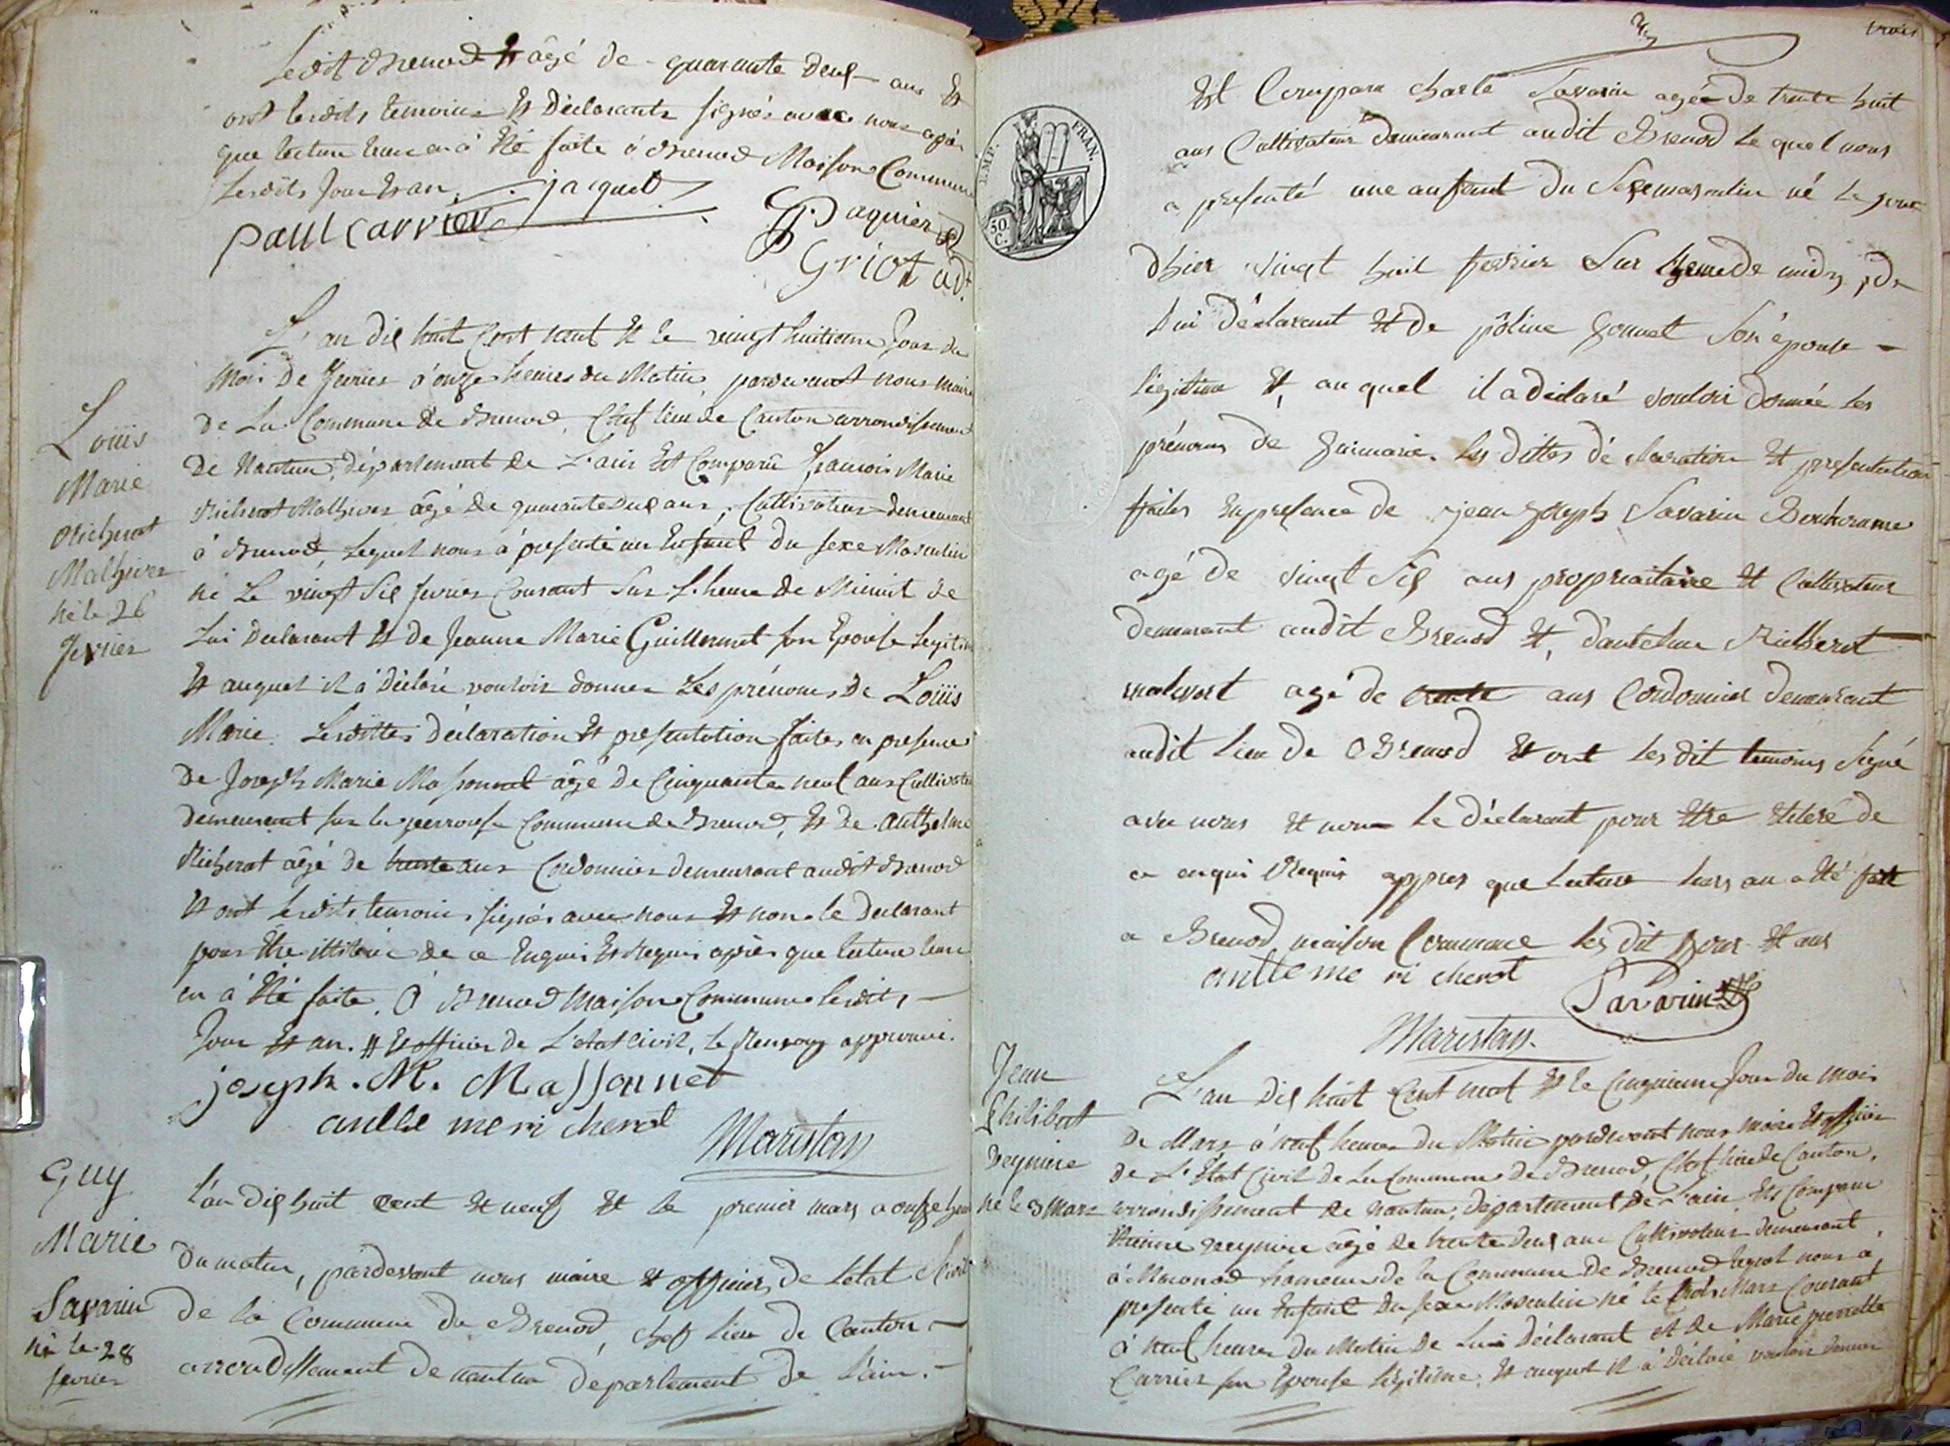 Ledit Brenod et âgé de quarante deux ans Et
ont lesdits temoins Et Déclarants signés avec nous après
que lecture leur en à Eté faite à Brenod Maison Commune
Lesdits Jour Et an. jacquet
paul carrier
Paquier
Griot adt
L'an dix huit Cent neuf Et le vingt huitieme Jour du
Mois De fevrier à onze heures du Matin pardevant nous maire
De La Commune de Brenod, Chef lieu de Canton arrondissement
De Nantua, Département de L'ain Est Comparû francois Marie
Richerot Mathieu âgé de quarante deux ans, Cultivateur demeurant
à Brenod, Lequel nous à presenté un Enfant du sexe Masculin
né Le vingt Six fevrier Courant Sur L'heure de Minuit de
Lui Declarant Et de Jeanne Marie Guillermet son Epouse Legitime
Et auquel il à Déclaré vouloir donner Les prénoms De Loüis
Marie. Lesdittes Déclaration Et presentation faites en presence
De Joseph Marie Massonnet âgé De Cinquante neuf ans Cultivateur
Demeurant sur la Commune de Brenod, Et De Anthelme
Richerot âgé de trente ans Cordonnier demeurant audit Brenod
Et ont lesdits temoins signés avec nous Et non le Declarant
pour Etre illitéré de ce Enquis Et Requis après que lecture leur
en à Eté faite. à Brenod Maison Commune lesdits
Jour Et an. # Et officier de L'etat Civil, le Renvoy approuvé.
joseph . M. Massonnet
antelme richerot
Maristan
Loüis
Marie
Richerot
Mathieu
né le 26
fevrier
Guy
Marie
Savarin
né le 28
fevrier
l'an dix huit cent et neuf Et le premier mars a onze heure
du matin, pardevant nous maire et officier de l'etat Civil
de la Commune de Brenod, chef Lieu de Canton
arrondissement de nantua departement de l'ain.
trois
Est Comparu charle Savarin agée de trente huit
ans Cultivateur demeurant audit Brenod Le quel nous
a presenté une anfant du Sexe masculin né le jour
dhier vingt huit fevrier Sur Heure de midy, de
Lui Déclarant Et de pôline gonnet Son épouse
légitime Et, au quel il a déclaré vouloir donnée les
prénoms de guimarie. les dittes déclaration et presentation
faites En presence de jean joseph Savarin Bonhomme
agé de vingt Six ans propriaitaire et Cultivateur
demeurant audit Brenod Et, d'antelme Richerot
agé de trente ans Cordonnier demeurant
audit Lieu de Brenod Et ont les dit temoins signé
avec nous Et non Le déclarant pour Etre de
ce enqui Requis appres que Lecture leurs an a Eté faite
a Brenod maison Commune les dit jour Et ans
antteme ri cherot
Savarin
Maristan.
Jean
Philibert
Reyniere
né le 3 Mars
L'an dix huit Cent neuf Et le Cinquieme Jour du mois
De Mars à neuf heures Du Matin pardevant nous maire Et officier
De L'Etat Civil de La Commune de Brenod, Chef lieu de Canton,
arrondissement de nantua, Departement de L'ain Est Comparu
Etienne reyniere âgé de trente deux ans Cultivateur demeurant
à hameau de la Commune de Brenod lequel nous à
presenté un Enfant du sexe Masculin né le trois Mars Courant
à neuf heures du Matin De Lui Déclarant et de Marie pierrette
Carrier son Epouse légitime, Et auquel il à déclaré vouloir donner